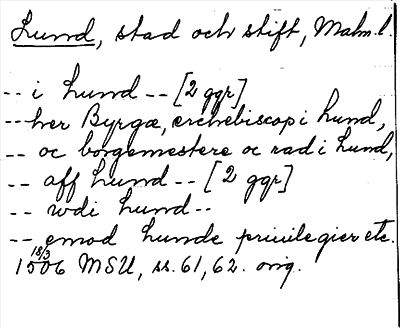 Lund, stad och stift, Malm.l.
-- i Lund -- [2 ggr]
-- her Byrgæ, erchebiscop i Lund,
-- oc borgemestere oc rad i Lund,
-- aff Lund -- [2 ggr]
-- wdi Lund --
-- emod Lunde priuilegier etc.
18/3 1506 MSU, ss. 61, 62. orig.